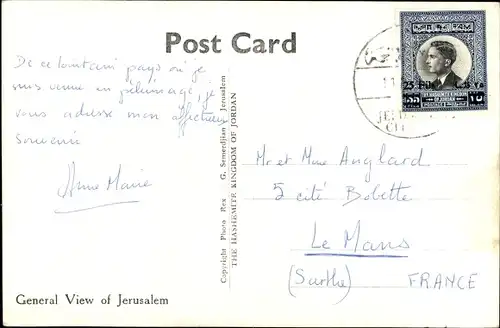 Post Card
De ce lointain pays où je
suis venue en pèlerinage, je
vous adresse mon affectueux
souvenir
Anne Marie
General View of Jerusalem
Copyright Photo Rex G. Semerdjian, Jerusalem
THE HASHEMITE KINGDOM OF JORDAN
THE HASHEMITE KINGDOM
OF JORDAN
Mr et Mme Anglard
5 cité Bobette
Le Mans
(Sarthe) FRANCE